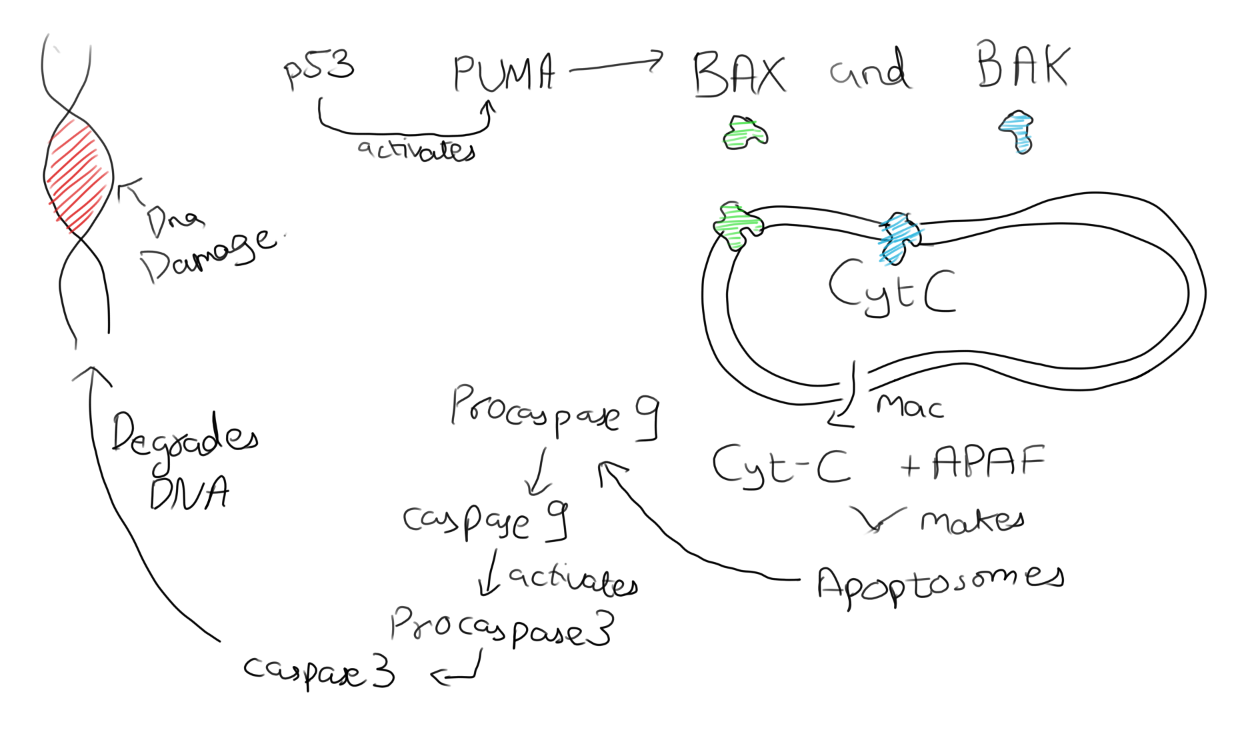 p53
PUMA
BAX and BAK
activates
Dna
Damage.
CytC
Mac
Cyt-C + APAF
makes
Apoptosomes
Procaspase 9
caspase 9
activates
Procaspase3
caspase3
Degrades
DNA